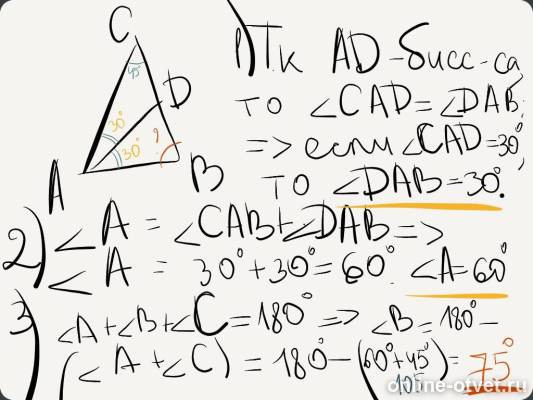 C
45°
D
30°
30°
?
A
B
1) Т.к AD - бисс-са,
то ∠CAD = ∠DAB,
=> если ∠CAD = 30°,
то ∠DAB = 30°.
2) ∠A = ∠CAB + ∠DAB =>
∠A = 30° + 30° = 60° ∠A = 60°
3) ∠A + ∠B + ∠C = 180° => ∠B = 180° -
(∠A + ∠C) = 180° - (60° + 45°) = 75°
105
online-otvet.ru